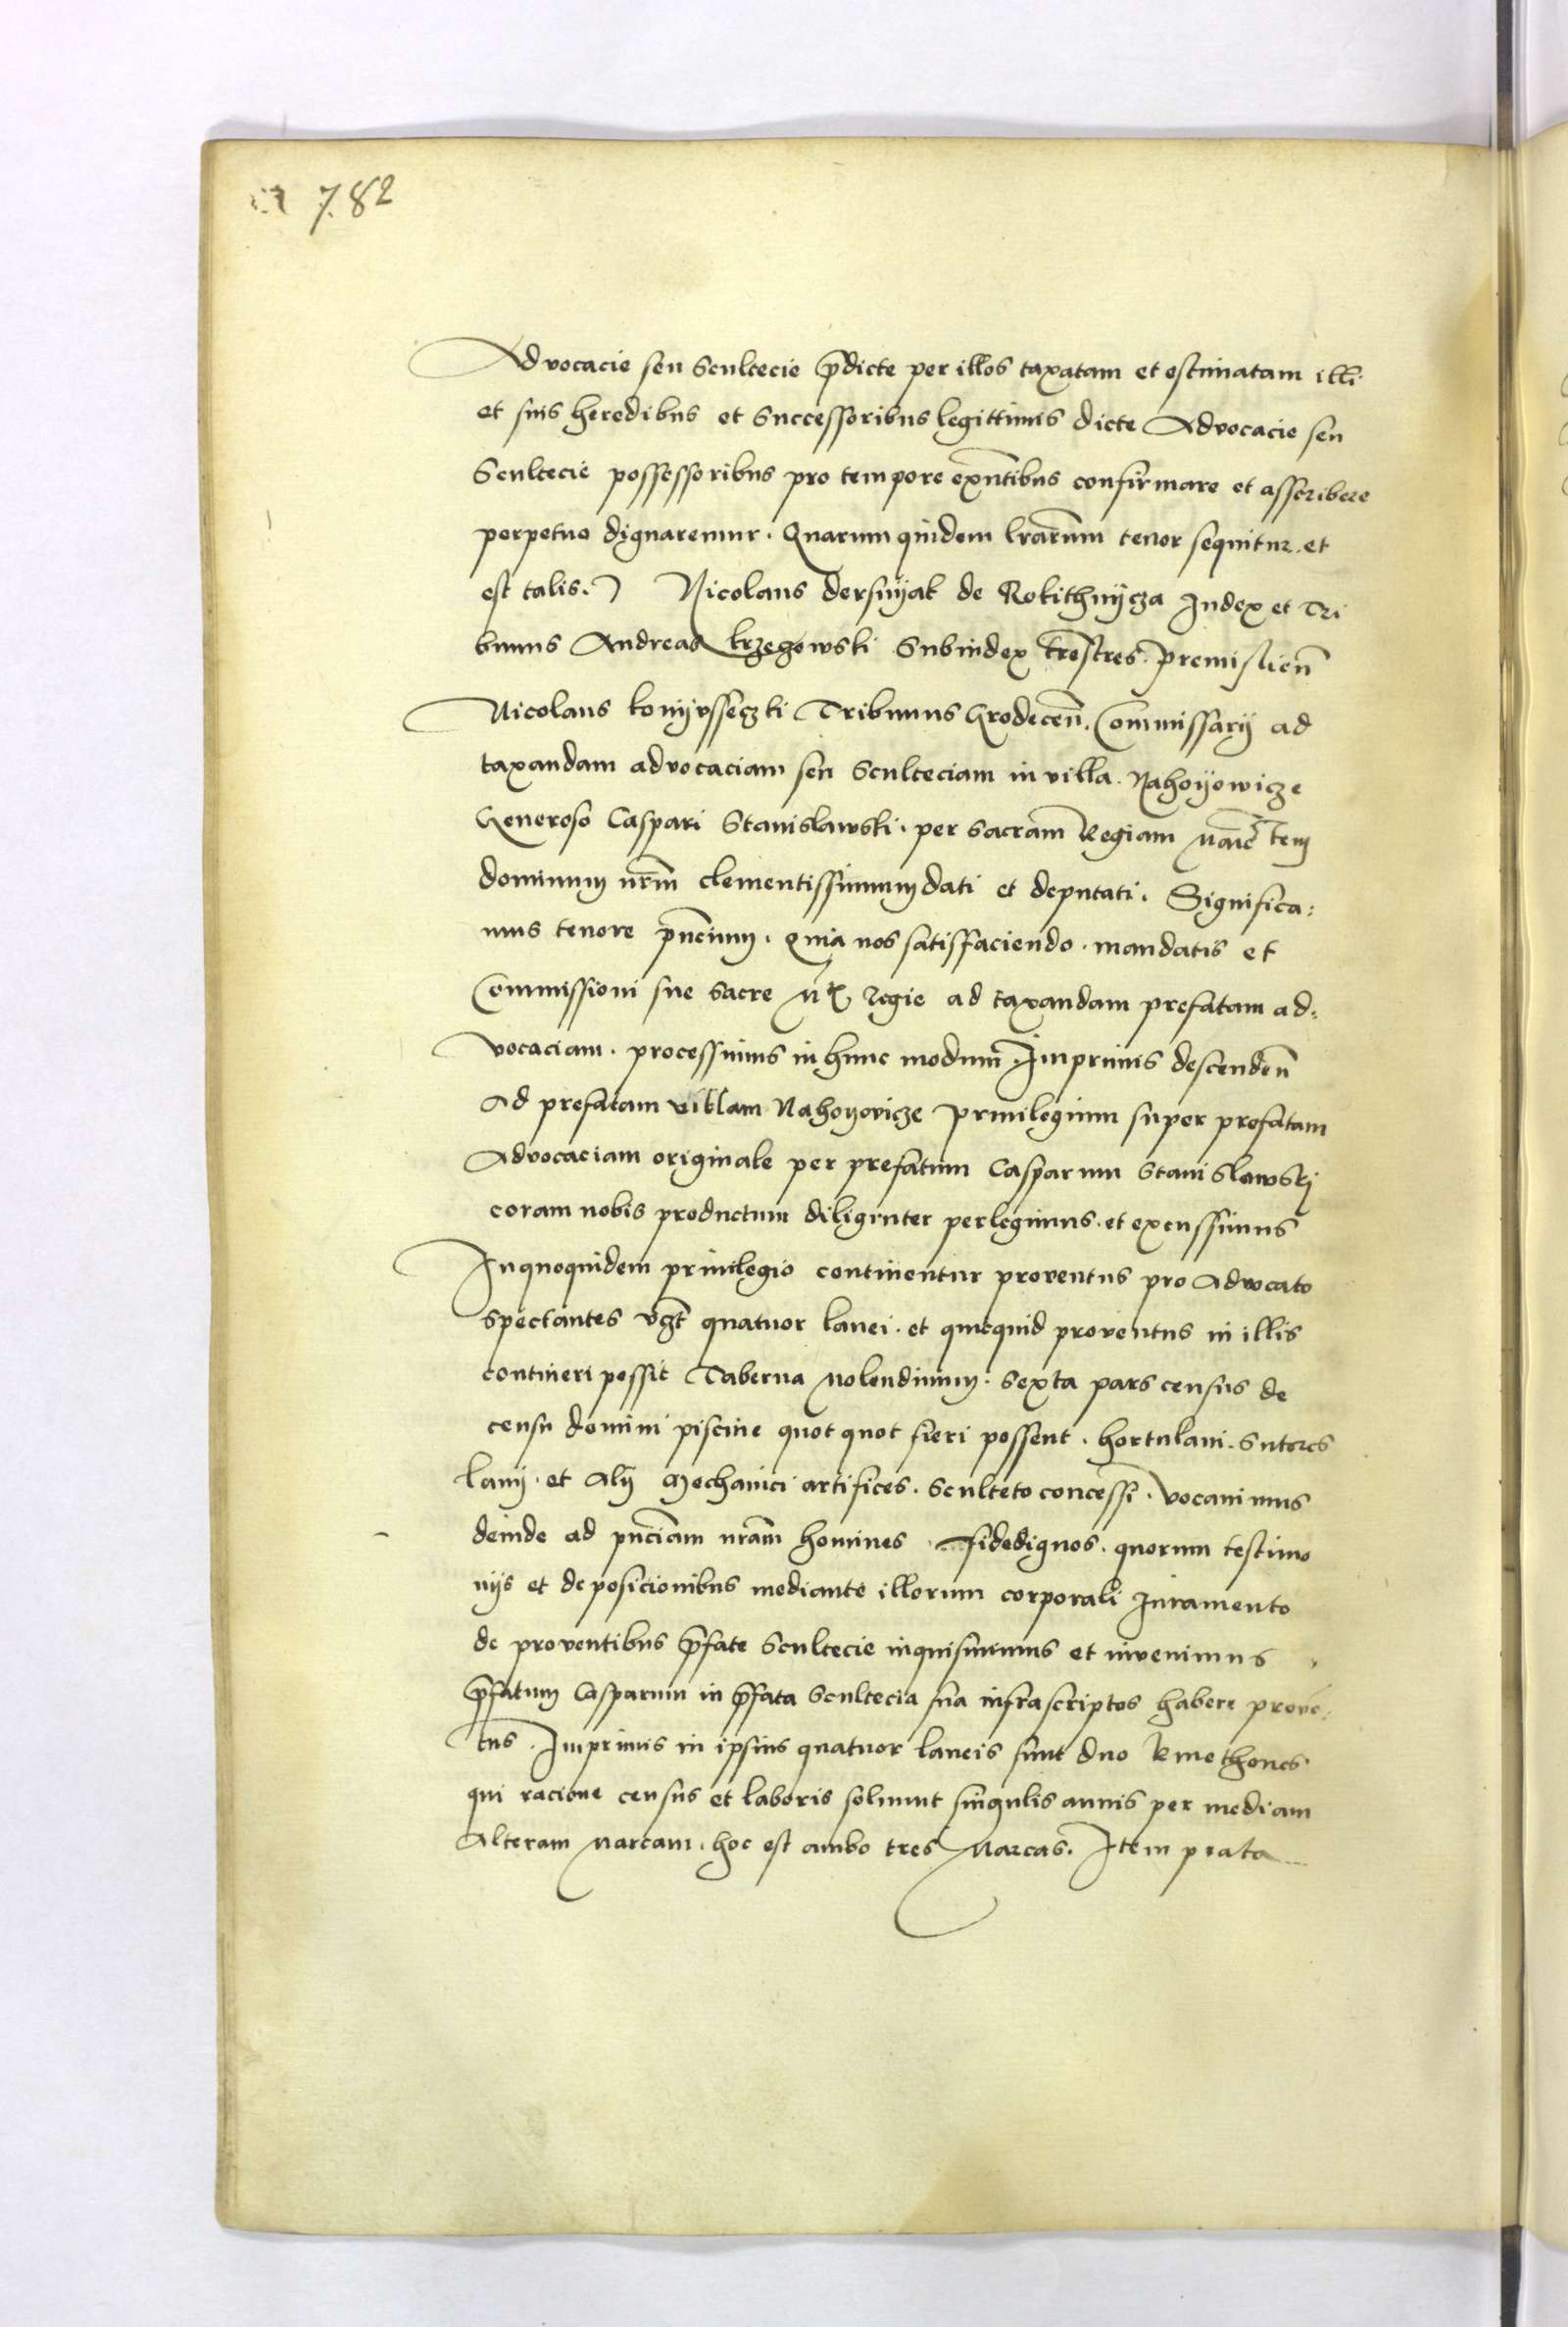 782
Advocacie seu Scultecie p̄dicte per illos taxatam et estimatam illi
et suis heredibus et Successoribus legittimis dicte Advocacie seu
Scultecie possessoribus pro tempore exñtibus confirmare et asscribere
perpetuo dignaremur. Quarum quidem lrarum tenor sequitur et
est talis. Nicolaus dersnyak de Rokithnycza Judex et Tri
bunus Andreas krzeczowski Subiudex tr̄estres Premislieñ
Nicolaus konyvsseczki Tribunus Grodeceñ. Commissarij ad
taxandam advocaciam seu Sculteciam in villa Nahoyowicze
Generoso Caspari Stanislawski. per Sacram Regiam Maiētem
dominum nr̄m clementissimum dati et deputati. Significa:
mus tenore p̄ncium. quia nos satisfaciendo. mandatis et
Commissioni sue Sacre Mtis Regie ad taxandam prefatam ad:
vocaciam. processimus in hunc modum. Imprimis descendeñ
Ad prefatam villam Nahoyovicze Privilegium super prefatam
Advocaciam originale per prefatum Casparum Stanislawskj
coram nobis productum diligenter perlegimus. et excussimus
In quoquidem privilegio continentur proventus pro Advocato
spectantes vȝt quatuor lanei. et quicquid proventus in illis
contineri possit Taberna Molendinum. Sexta pars census de
censu domini piscine quot quot fieri possent. hortulani. Sutores
lanij. et Alij Mechanici artifices. Sculteto concessi. Vocavimus
deinde ad p̄nciam nr̄am homines fidedignos. quorum testimo
nijs et deposicionibus mediante illorum corporali Juramento
de proventibus p̄fate Scultecie inquisivimus et invenimus
p̄fatum Casparum in p̄fata Scultecia sua infrascriptos habere prove:
tus. Imprimis in ipsius quatuor laneis sunt duo kmethones
qui racione census et laboris solvunt singulis annis per mediam
Alteram Marcam. hoc est ambo tres Marcas. Item prata